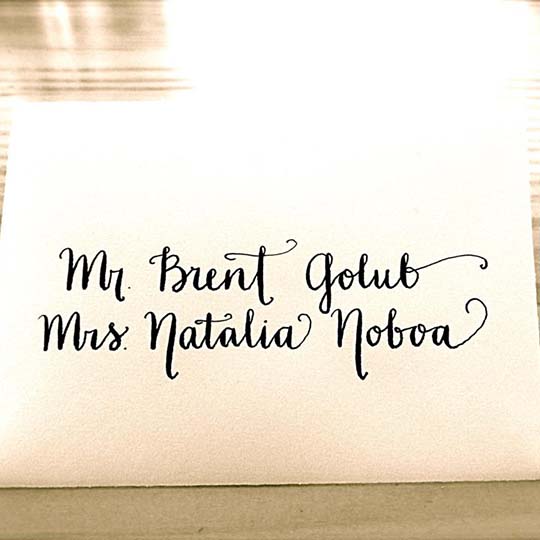 Mr. Brent Golub
Mrs. Natalia Noboa